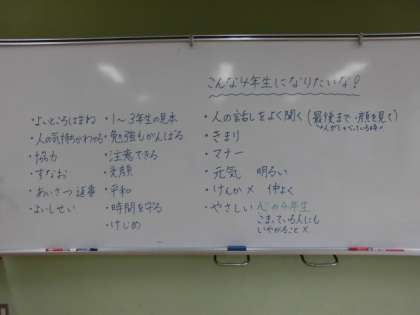 こんな4年生になりたいな!
・よいところはまね
・人の気持ちがわかる
・協力
・すなお
・あいさつ 返事
・よいしせい
・1～3年生の見本
・勉強もがんばる
・注意できる
・笑顔
・平和
・時間を守る
・けじめ
・人の話しをよく聞く(最後まで・顔を見て)
・きまり
・マナー
・元気 明るい
・けんか× 仲よく
・やさしい
こまっている人にも
いやがること×